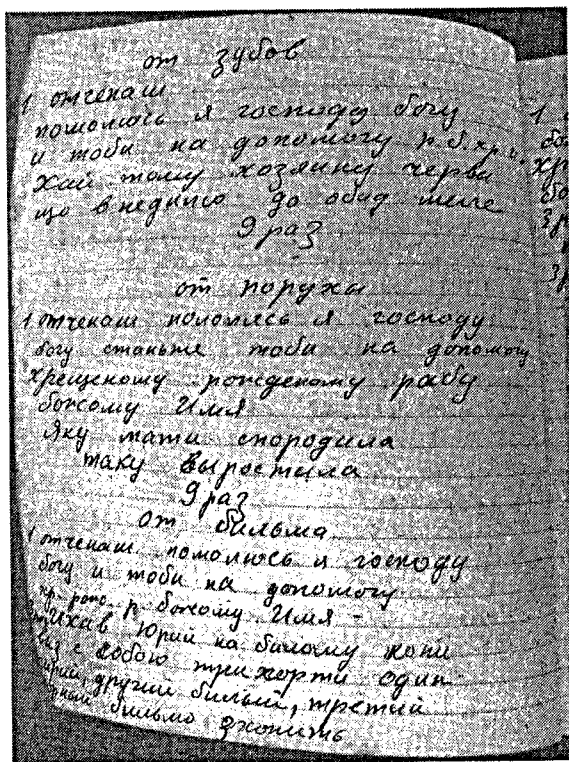 от зубов
1 отченаш
помолюсь я господу богу
и тоби на допомогу р.б.хр.и.
хай тому хозяину черви
що в недилю до обид меле
9 раз
от порухы
1 отченаш помолюсь я господу
богу станьте тоби на допомогу
хрещеному рожденому рабу
божому Имя
Яку мати спородила
таку выростила
9 раз
от бильма
1 отченаш помолюсь я господу
богу и тоби на допомогу
хр-рож. р божому Имя -
Ихав Юрий на билому кони
с собою три хорти один
другий билый, третий
бильмо зхопить
1
бо
хр
бо
зр
зр